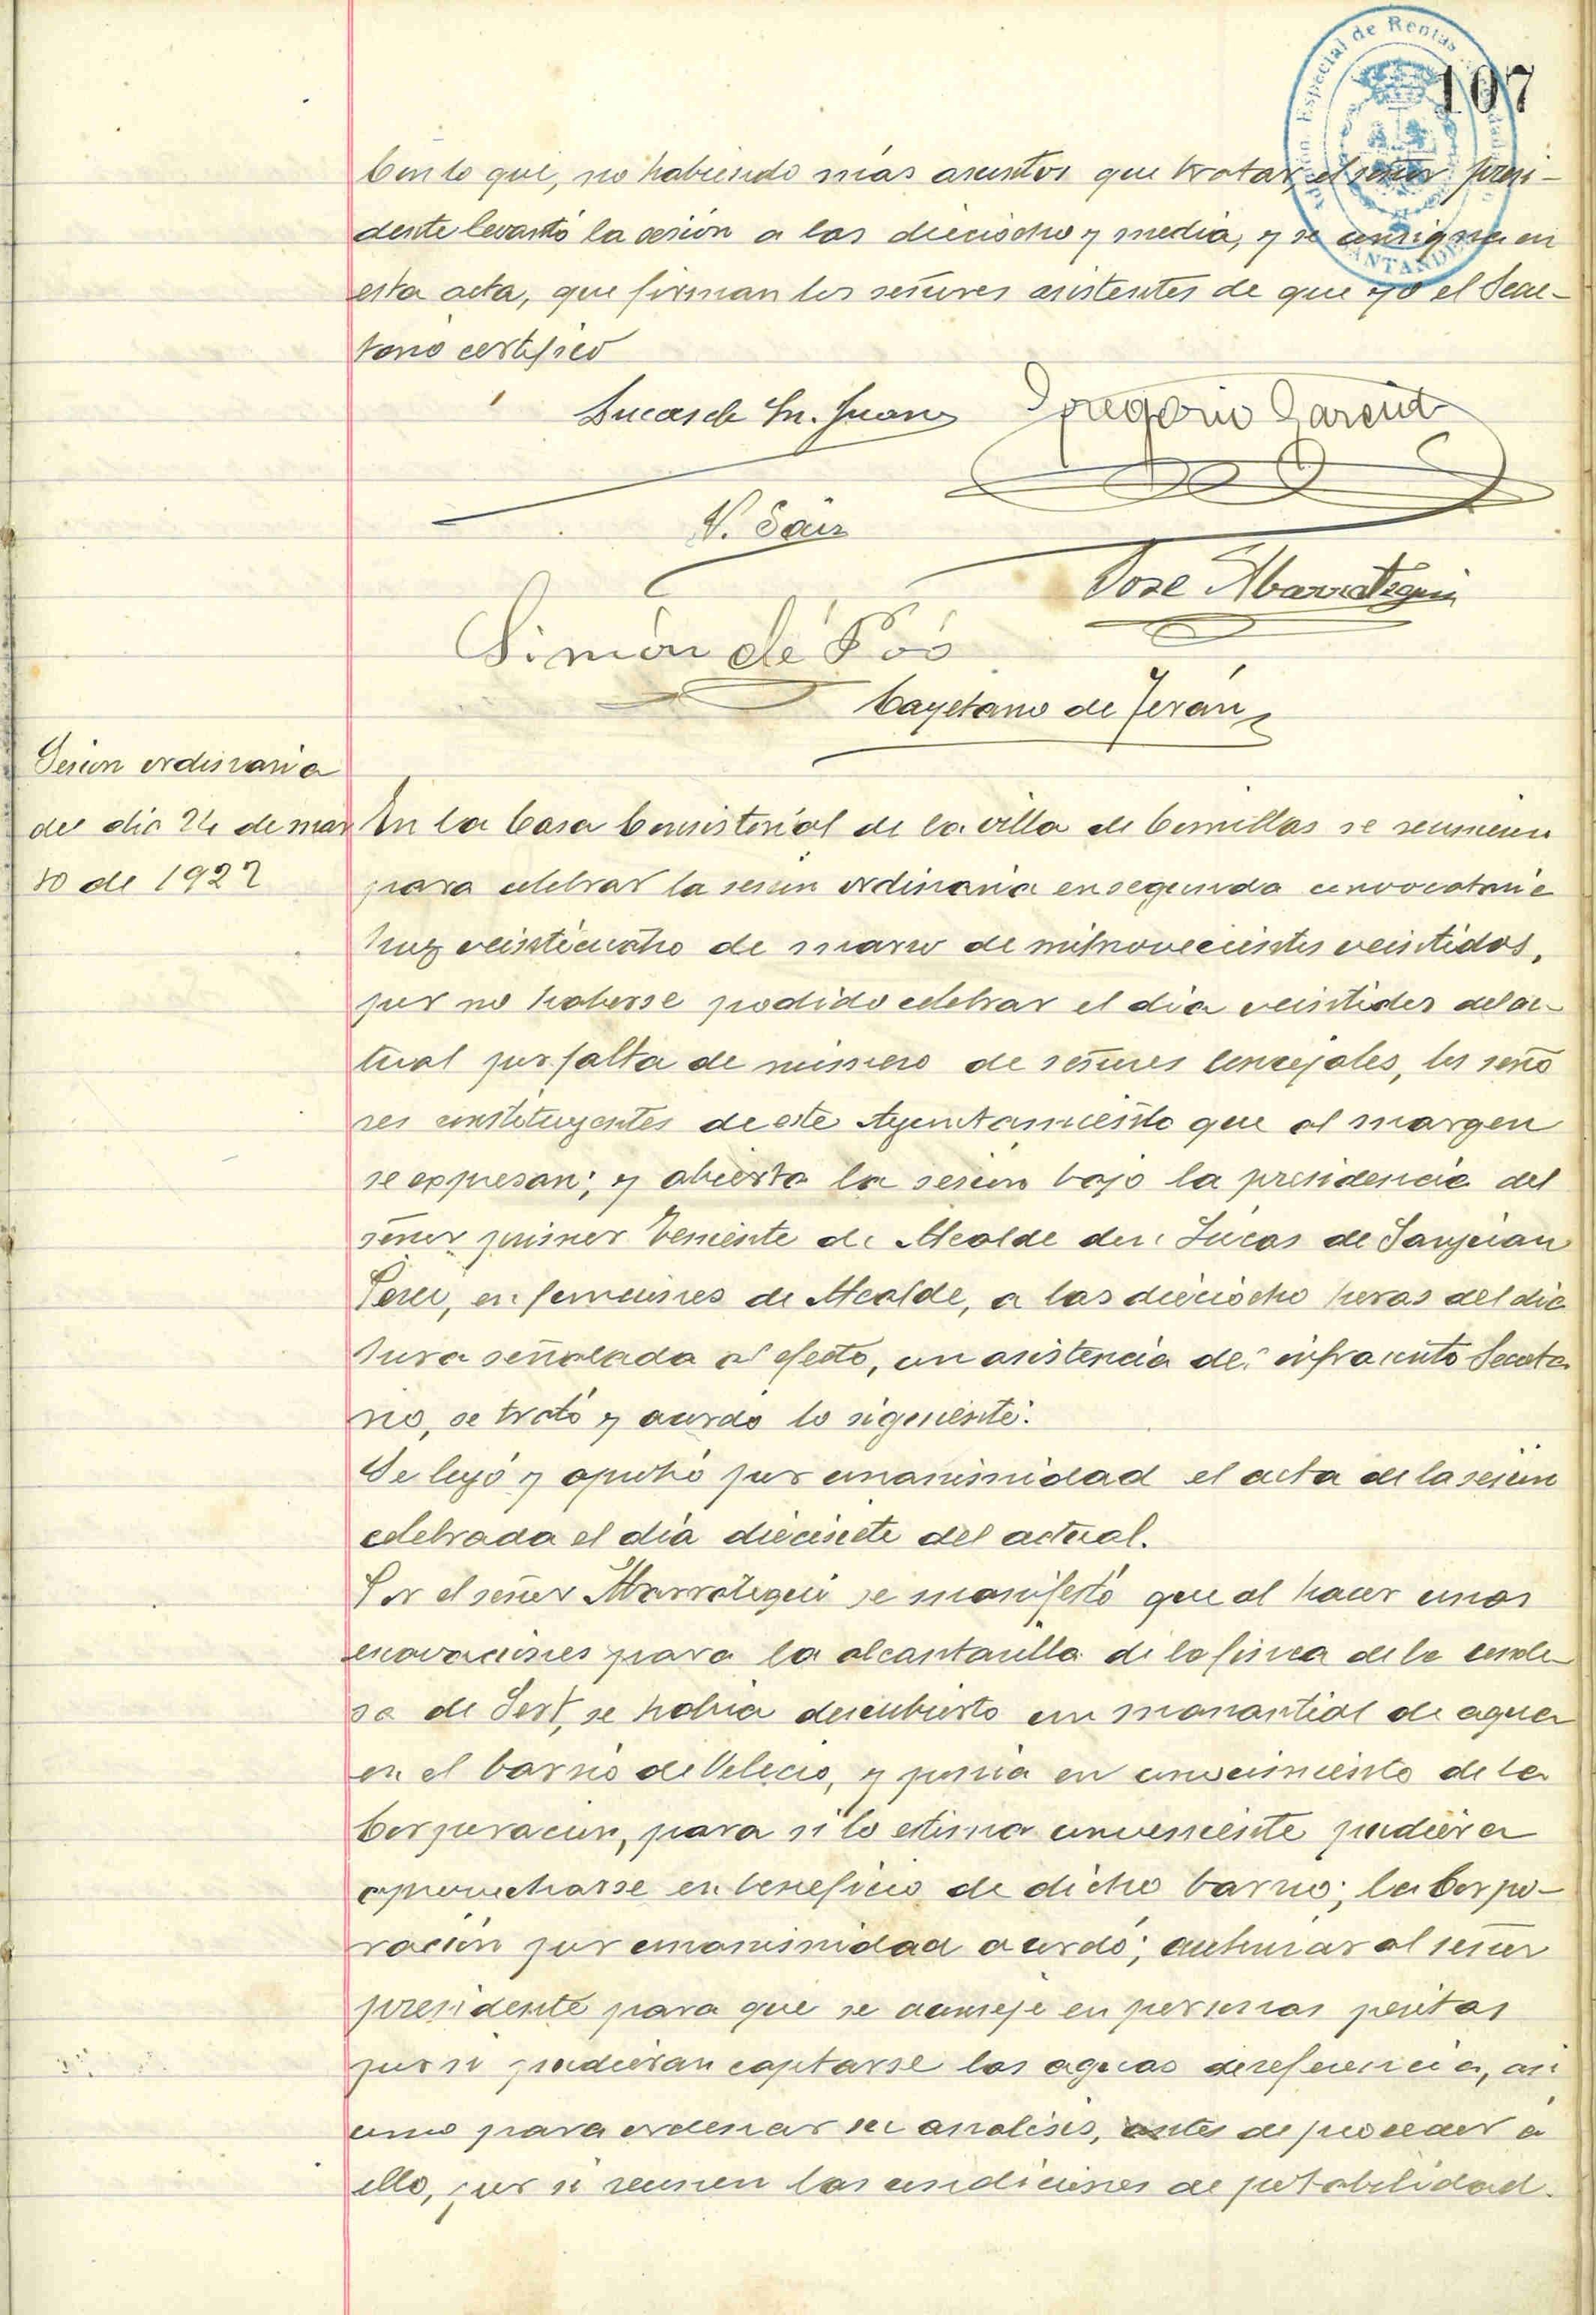 107
Especial de Rentas
SANTANDER
Con lo que, no habiendo más asuntos que tratar, el señor presi-
dente levantó la sesión a las dieciocho y media, y se consigna en
esta acta, que firman los señores asistentes de que yo el Secre-
tario certifico
Lucas de Sn. Juan Gregorio
V. Sainz
Jose Abarrategui
Simón de Pos
Cayetano de Terán
Sesion ordinaria
del dia 24 de mar
zo de 1922
En la Casa Consistorial de la villa de Comillas se reunieron
para celebrar la sesión ordinaria en segunda convocatoria
hoy veinticuatro de marzo de milnovecientos veintidos,
por no haberse podido celebrar el dia veintidos del ac-
tual por falta de número de señores concejales, los seño
res constituyentes de este Ayuntamiento que al margen
se expresan; y abierta la sesión bajo la presidencia del
señor primer Teniente de Alcalde don Lucas de Sanjuan
Perez, en funciones de Alcalde, a las dieciocho horas del dia
hora señalada al efecto, con asistencia del infrascrito Secreta
rio, se trató y acordó lo siguiente:
Se leyó y aprobó por unanimidad el acta de la sesión
celebrada el día diecisiete del actual.
Por el señor Abarrategui se manifestó que al hacer unas
excavaciones para la alcantarilla de la finca de la conde
sa de Sert, se habia descubierto un manantial de agua
en el barrio de Velecio, y ponia en conocimiento de la
Corporación, para si lo estima conveniente pudiera
aprovecharse en beneficio de dicho barrio; la Corpo-
ración por unanimidad acordó; autorizar al señor
presidente para que se aconseje en personas peritas
por si pudieran captarse las aguas de referencia, asi
como para ordenar su analisis, antes de proceder a
ello, por si reunen las condiciones de potabilidad.